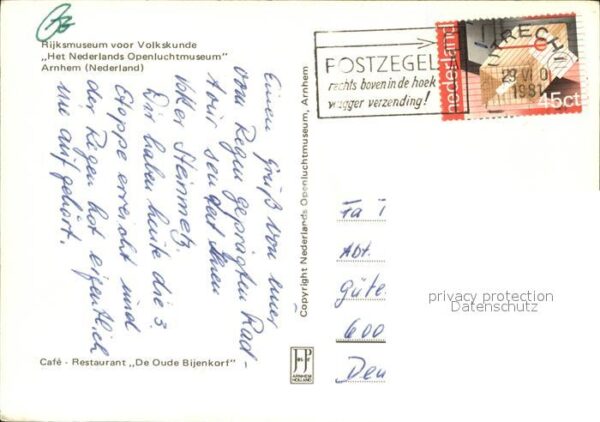 Rijksmuseum voor Volkskunde
„Het Nederlands Openluchtmuseum"
Arnhem (Nederland)
Einen Gruß von einer
vom Regen geprägten Rad-
tour sendet Ihnen
Volker Steinmetz.
Wir haben heute die 3.
Etappe erreicht und
der Regen hat eigentlich
nie aufgehört.
Café - Restaurant „De Oude Bijenkorf"
Copyright Nederlands Openluchtmuseum, Arnhem
ARNHEM
HOLLAND
POSTZEGEL
rechts boven in de hoek
vlugger verzending!
UTRECHT
1981
nederland
45ct
Fa
Abt.
Güte
600
Den
privacy protection
Datenschutz